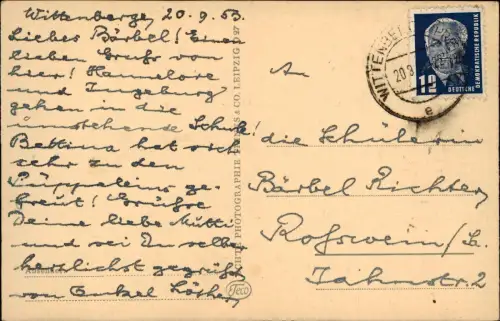 Wittenberge, 20.9.53.
Liebes Bärbel! Einen
lieben Gruß von
hier! Hannelore
und Ingeburg
gehen in die
umstehende Schule!
Bettina hat sich
sehr zu den
Püppeleins ge-
freut! Grüße
Deine liebe Mutti
und sei Du selber
herzlichst gegrüßt
von Onkel
An
die Schülerin
Bärbel Richter,
Roßwein/Sa.
Jahnstr. 2
WITTENBE
20.9
e
12
DEUTSCHE
DEMOKRATISCHE REPUBLIK
PHOTOGRAPHIE
& CO. LEIPZIG